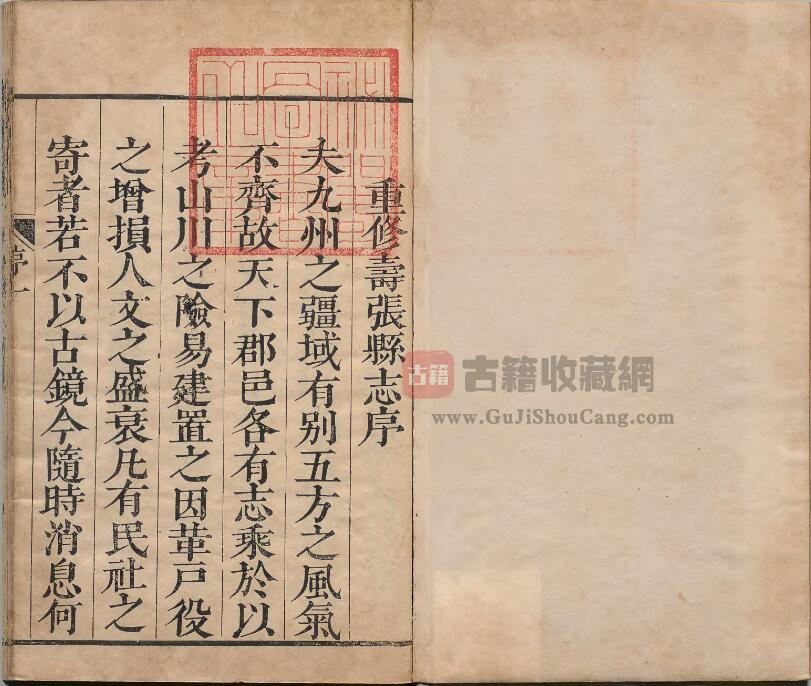 重修壽張縣志序
夫九州之疆域有別五方之風氣
不齊故天下郡邑各有志乘於以
考山川之險易建置之因革戸役
之增損人文之盛衰凡有民社之
寄者若不以古鏡今隨時消息何
序一
古籍
古籍收藏網
www.GuJiShouCang.com